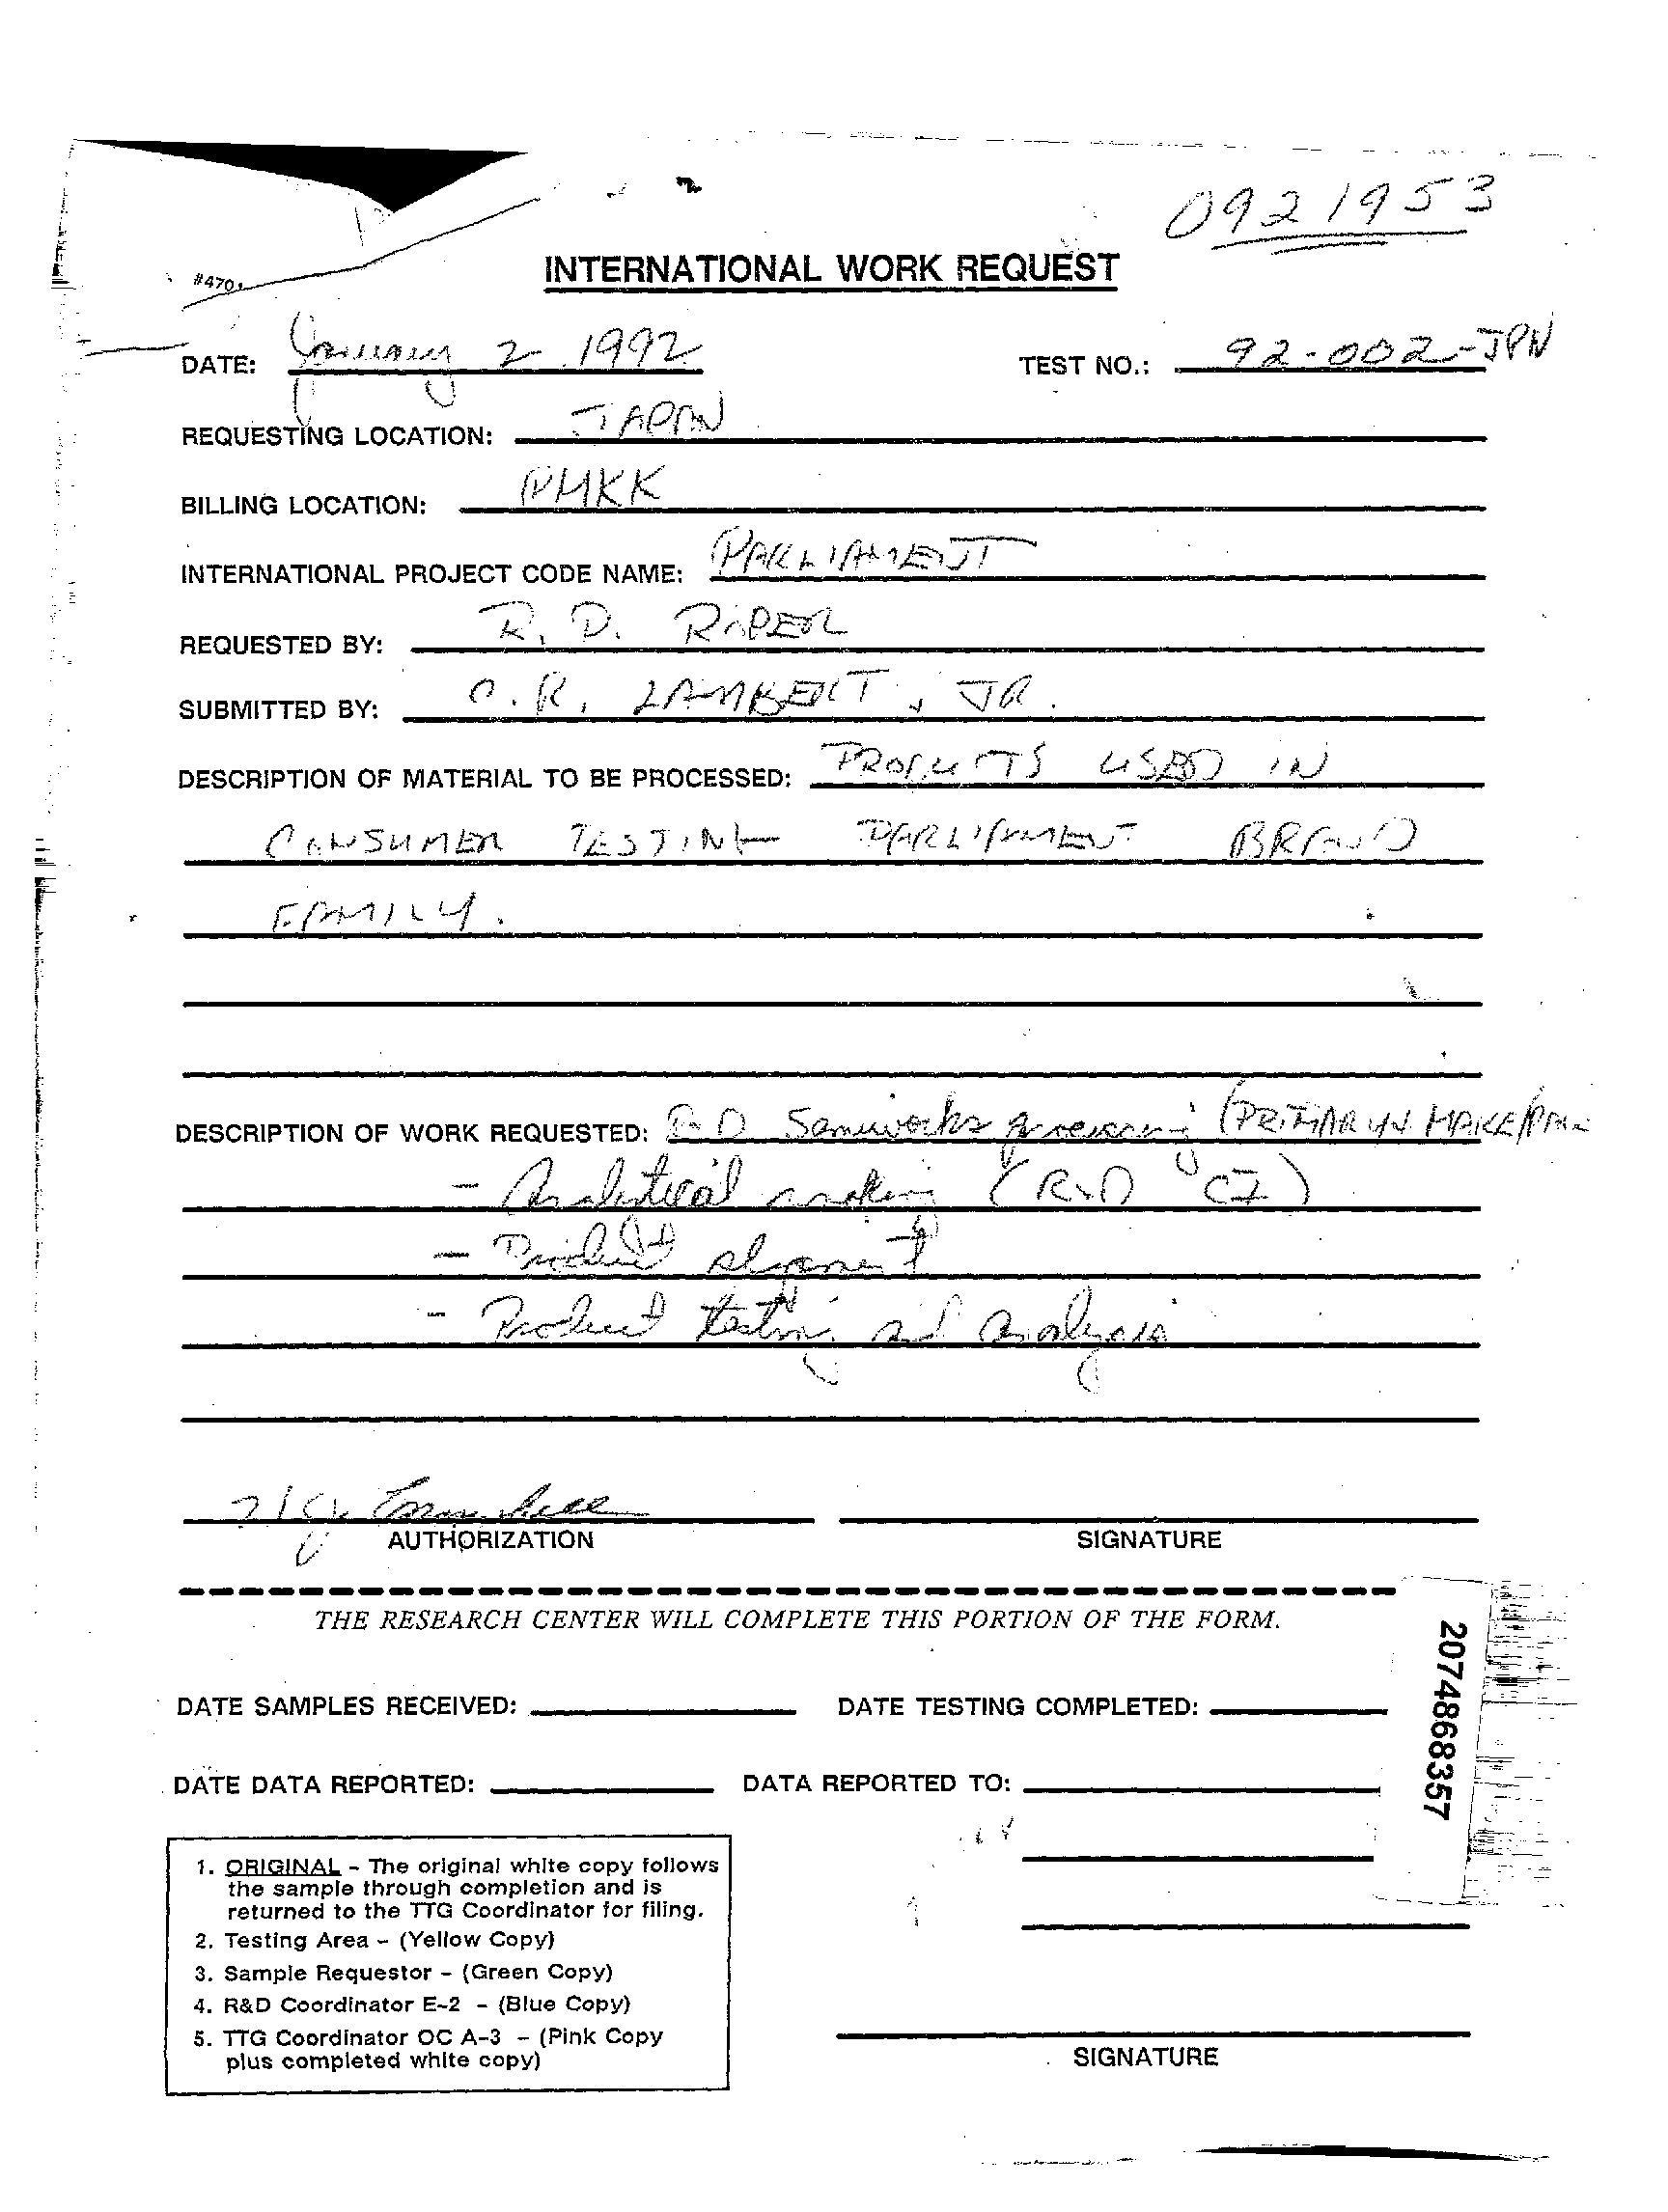 0921953
#470
INTERNATIONAL WORK REQUEST
DATE: January 2 1992 TEST NO.: 92-002-JPN
REQUESTING LOCATION: JAPAN
BILLING LOCATION: PMKK
INTERNATIONAL PROJECT CODE NAME: PARLIAMENT
REQUESTED BY: R. D. RIPER
SUBMITTED BY: C. R. LAMBERT, JR.
DESCRIPTION OF MATERIAL TO BE PROCESSED: PRODUCTS USED IN
CONSUMER TESTING PARLIAMENT BRAND
FAMILY.
DESCRIPTION OF WORK REQUESTED: R&D Semiworks processing (PRIMARY MAKE/
- Analytical smoking (R&D CI)
- Product shipment
- Product testing and analysis
AUTHORIZATION SIGNATURE
THE RESEARCH CENTER WILL COMPLETE THIS PORTION OF THE FORM.
DATE SAMPLES RECEIVED: DATE TESTING COMPLETED:
DATE DATA REPORTED: DATA REPORTED TO:
2074868357
1. ORIGINAL - The original white copy follows
the sample through completion and is
returned to the TTG Coordinator for filing.
2. Testing Area - (Yellow Copy)
3. Sample Requestor - (Green Copy)
4. R&D Coordinator E-2 - (Blue Copy)
5. TTG Coordinator OC A-3 - (Pink Copy
plus completed white copy)
SIGNATURE